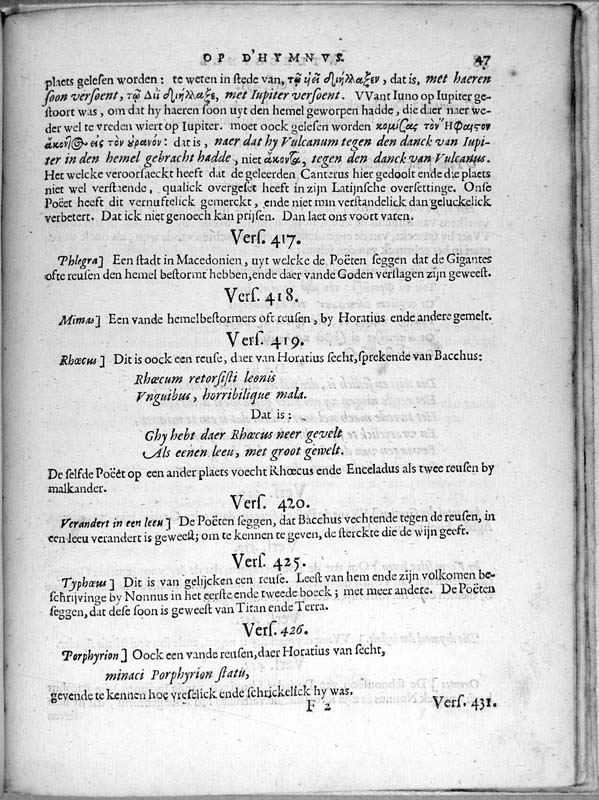 OP D'HYMNVS. 47
plaets gelesen worden: te weten in stede van, τῷ υἱεῖ διήλλαξεν, dat is, met haeren
soon versoent, τῷ Διῒ διήλλαξε, met Iupiter versoent. VVant Iuno op Iupiter ge-
stoort was, om dat hy haeren soon uyt den hemel geworpen hadde, die daer naer we-
der wel te vreden wiert op Iupiter. moet oock gelesen worden κομίζας τὸν Ἥφαιστον
ἄκοντ@ εἰς τὸν ὐρανόν: dat is, naer dat hy Vulcanum tegen den danck van Iupi-
ter in den hemel gebracht hadde, niet ἄκοντα, tegen den danck van Vulcanus.
Het welcke veroorsaeckt heeft dat de geleerden Canterus hier gedoolt ende die plaets
niet wel verstaende, qualick overgeset heeft in zijn Latijnsche oversettinge. Onse
Poëet heeft dit vernuftelick gemerckt, ende niet min verstandelick dan geluckelick
verbetert. Dat ick niet genoech kan prijsen. Dan laet ons voort varen.
Vers. 417.
Phlegra] Een stadt in Macedonien, uyt welcke de Poëten seggen dat de Gigantes
ofte reusen den hemel bestormt hebben, ende daer vande Goden verslagen zijn geweest.
Vers. 418.
Mimas] Een vande hemelbestormers oft reusen, by Horatius ende andere gemelt.
Vers. 419.
Rhœcus] Dit is oock een reuse, daer van Horatius secht, sprekende van Bacchus:
Rhœcum retorsisti leonis
Vnguibus, horribilique mala.
Dat is:
Ghy hebt daer Rhœcus neer gevelt
Als eenen leeu, met groot gewelt.
De selfde Poëet op een ander plaets voecht Rhœcus ende Enceladus als twee reusen by
malkander.
Vers. 420.
Verandert in een leeu] De Poëten seggen, dat Bacchus vechtende tegen de reusen, in
een leeu verandert is geweest; om te kennen te geven, de sterckte die de wijn geeft.
Vers. 425.
Typhœus] Dit is van gelijcken een reuse. Leest van hem ende zijn volkomen be-
schrijvinge by Nonnus in het eerste ende tweede boeck; met meer andere. De Poëten
seggen, dat dese soon is geweest van Titan ende Terra.
Vers. 426.
Porphyrion] Oock een vande reusen, daer Horatius van secht,
minaci Porphyrion statu,
gevende te kennen hoe vreselick ende schrickelick hy was.
F 2 Vers. 431.